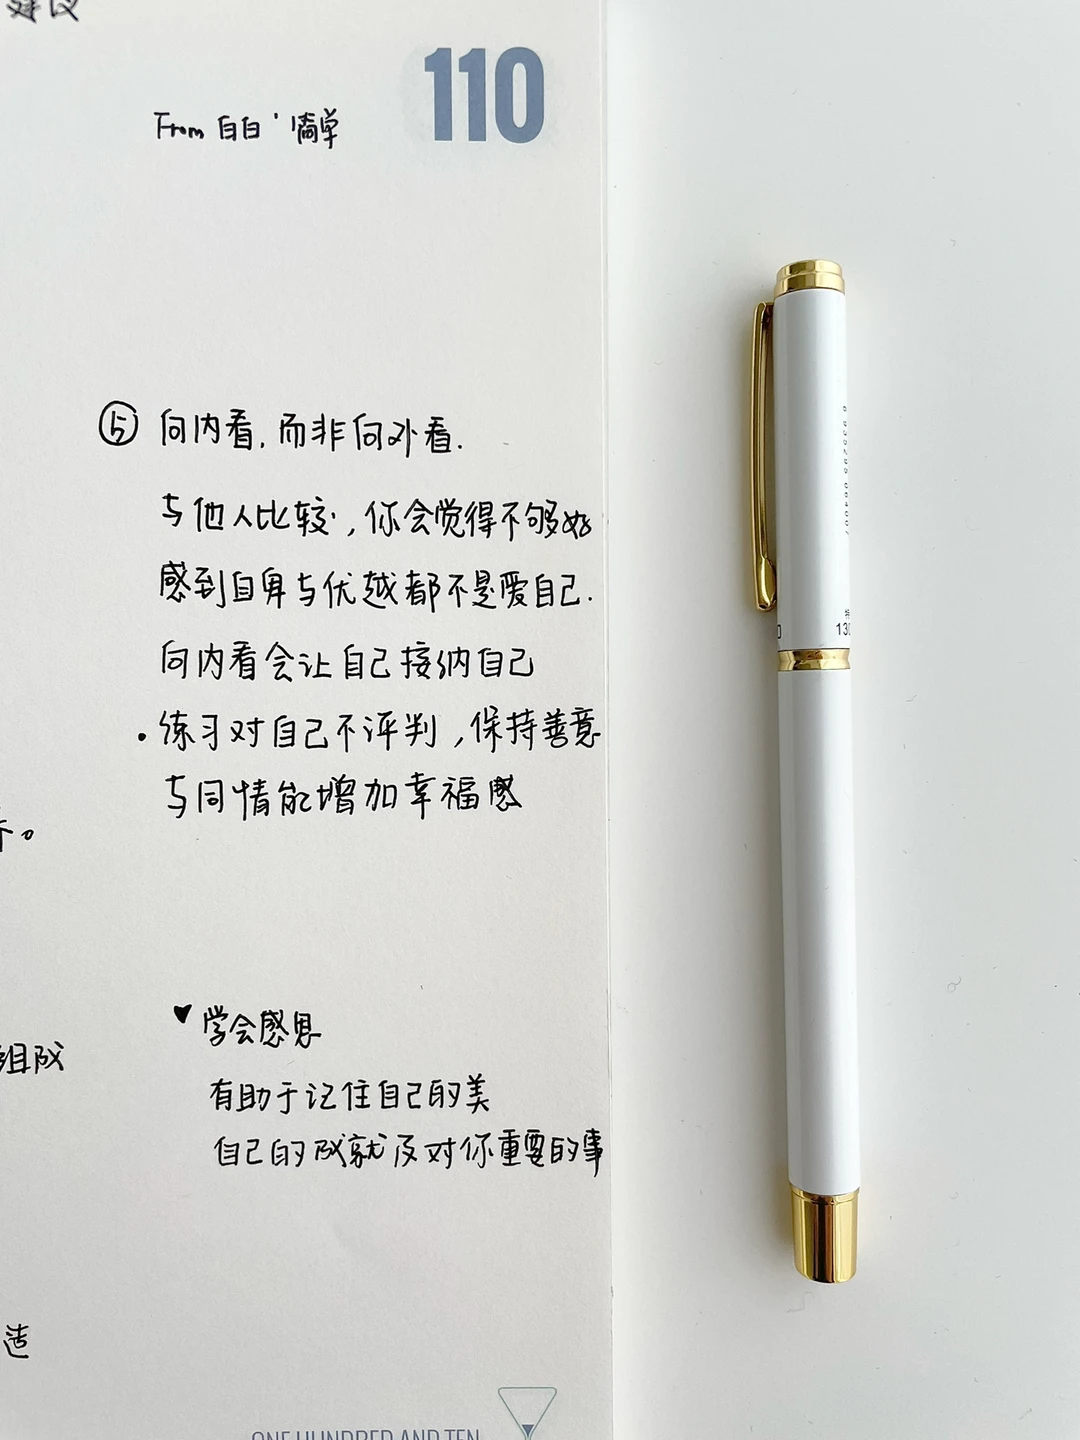 建议
110
From 白白'简单
⑤ 向内看,而非向外看.
与他人比较,你会觉得不够好
感到自卑与优越都不是爱自己.
向内看会让自己接纳自己
·练习对自己不评判,保持善意
与同情能增加幸福感
。
♥学会感恩
组成
有助于记住自己的美
自己的成就及对你重要的事
造
ONE HUNDRED AND TEN
6 935205 064007
130